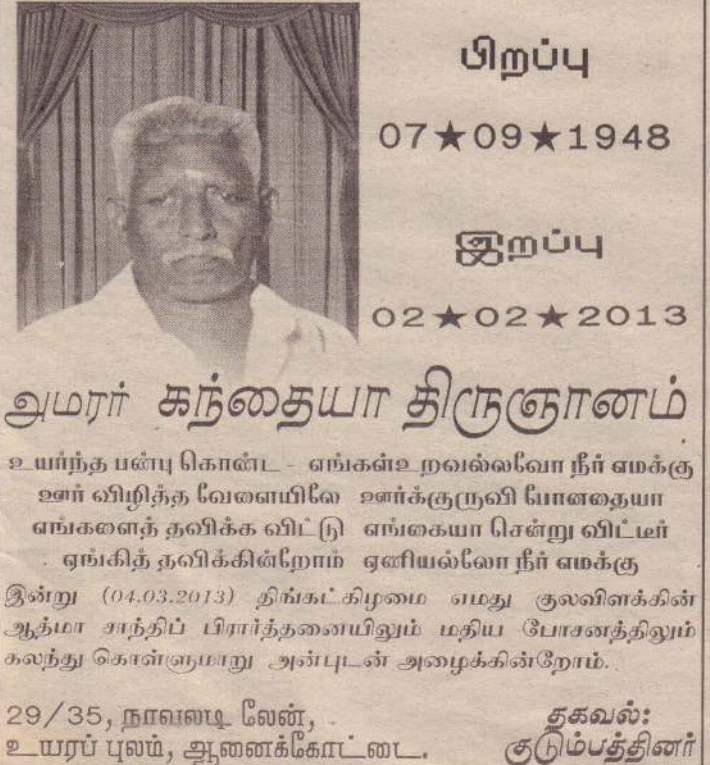 பிறப்பு
07★09★1948
இறப்பு
02★02★2013
அமரர் கந்தையா திருஞானம்
உயர்ந்த பண்பு கொண்ட - எங்கள்உறவல்லவோ நீர் எமக்கு
ஊர் விழித்த வேளையிலே ஊர்க்குருவி போனதையா
எங்களைத் தவிக்க விட்டு எங்கையா சென்று விட்டீர்
ஏங்கித் தவிக்கின்றோம் ஏணியல்லோ நீர் எமக்கு
இன்று (04.03.2013) திங்கட்கிழமை எமது குலவிளக்கின்
ஆத்மா சாந்திப் பிரார்த்தனையிலும் மதிய போசனத்திலும்
கலந்து கொள்ளுமாறு அன்புடன் அழைக்கின்றோம்.
29/35, நாவலடி லேன்,
உயரப் புலம், ஆனைக்கோட்டை.
தகவல்:
குடும்பத்தினர்